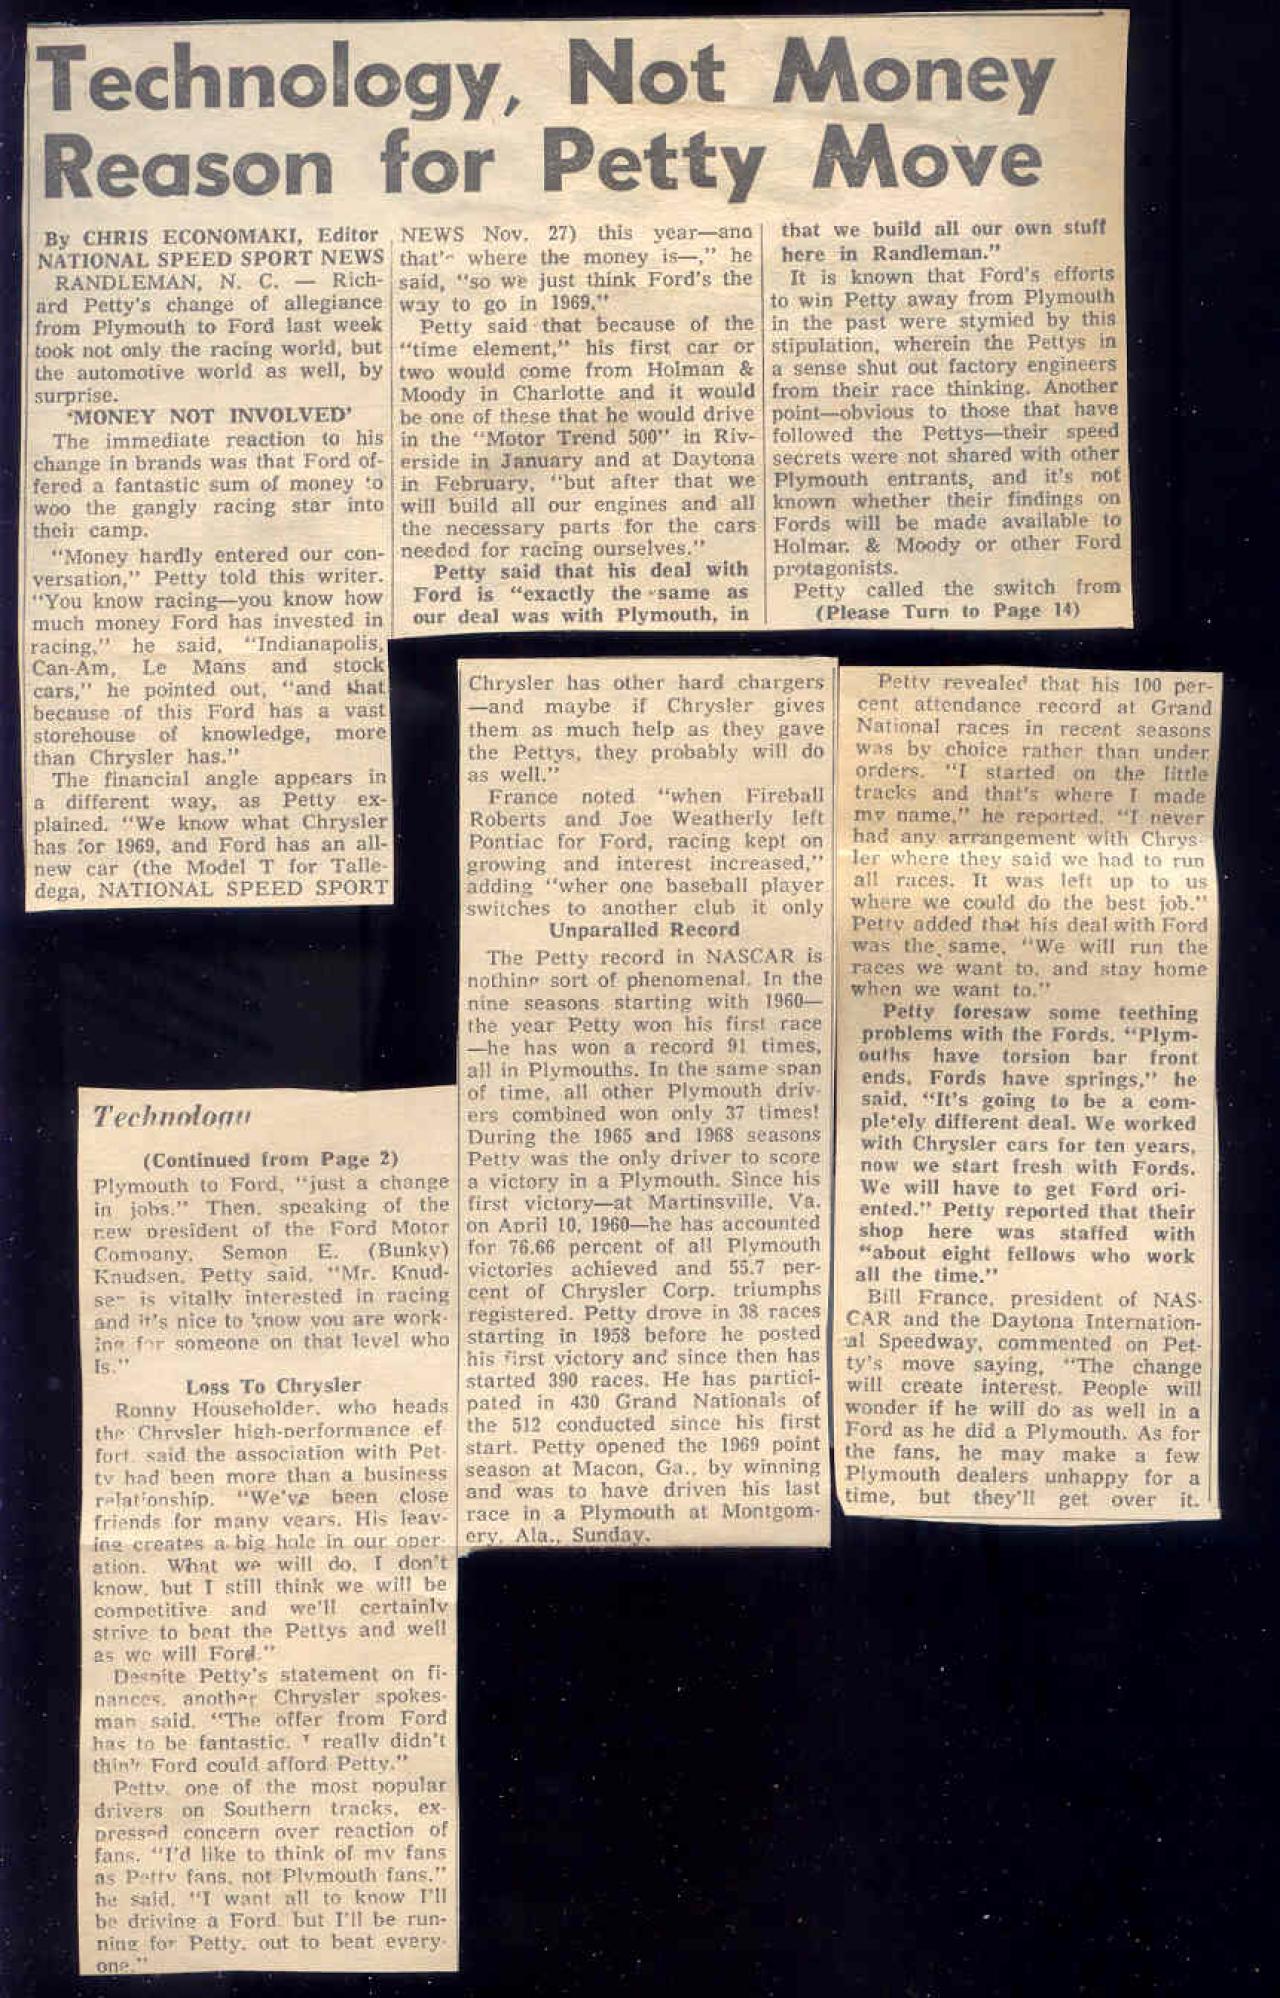 Technology, Not Money
Reason for Petty Move
By CHRIS ECONOMAKI, Editor
NATIONAL SPEED SPORT NEWS
RANDLEMAN, N. C. — Rich-
ard Petty's change of allegiance
from Plymouth to Ford last week
took not only the racing world, but
the automotive world as well, by
surprise.
'MONEY NOT INVOLVED'
The immediate reaction to his
change in brands was that Ford of-
fered a fantastic sum of money to
woo the gangly racing star into
their camp.
"Money hardly entered our con-
versation," Petty told this writer.
"You know racing—you know how
much money Ford has invested in
racing," he said, "Indianapolis,
Can-Am, Le Mans and stock
cars," he pointed out, "and that
because of this Ford has a vast
storehouse of knowledge, more
than Chrysler has."
The financial angle appears in
a different way, as Petty ex-
plained. "We know what Chrysler
has for 1969, and Ford has an all-
new car (the Model T for Talle-
dega, NATIONAL SPEED SPORT
NEWS Nov. 27) this year—and
that's where the money is—," he
said, "so we just think Ford's the
way to go in 1969."
Petty said that because of the
"time element," his first car or
two would come from Holman &
Moody in Charlotte and it would
be one of these that he would drive
in the "Motor Trend 500" in Riv-
erside in January and at Daytona
in February, "but after that we
will build all our engines and all
the necessary parts for the cars
needed for racing ourselves."
Petty said that his deal with
Ford is "exactly the same as
our deal was with Plymouth, in
that we build all our own stuff
here in Randleman."
It is known that Ford's efforts
to win Petty away from Plymouth
in the past were stymied by this
stipulation, wherein the Pettys in
a sense shut out factory engineers
from their race thinking. Another
point—obvious to those that have
followed the Pettys—their speed
secrets were not shared with other
Plymouth entrants, and it's not
known whether their findings on
Fords will be made available to
Holman & Moody or other Ford
protagonists.
Petty called the switch from
(Please Turn to Page 14)
Technology
(Continued from Page 2)
Plymouth to Ford, "just a change
in jobs." Then, speaking of the
new president of the Ford Motor
Company, Semon E. (Bunky)
Knudsen, Petty said, "Mr. Knud-
sen is vitally interested in racing
and it's nice to know you are work-
ing for someone on that level who
is."
Loss To Chrysler
Ronny Householder, who heads
the Chrysler high-performance ef-
fort, said the association with Pet-
ty had been more than a business
relationship. "We've been close
friends for many years. His leav-
ing creates a big hole in our oper-
ation. What we will do, I don't
know, but I still think we will be
competitive and we'll certainly
strive to beat the Pettys and well
as we will Ford."
Despite Petty's statement on fi-
nances, another Chrysler spokes-
man said, "The offer from Ford
has to be fantastic. I really didn't
think Ford could afford Petty."
Petty, one of the most popular
drivers on Southern tracks, ex-
pressed concern over reaction of
fans. "I'd like to think of my fans
as Petty fans, not Plymouth fans,"
he said, "I want all to know I'll
be driving a Ford, but I'll be run-
ning for Petty, out to beat every-
one."
Petty revealed that his 100 per-
cent attendance record at Grand
National races in recent seasons
was by choice rather than under
orders. "I started on the little
tracks and that's where I made
my name," he reported, "I never
had any arrangement with Chrys-
ler where they said we had to run
all races. It was left up to us
where we could do the best job."
Petty added that his deal with Ford
was the same, "We will run the
races we want to, and stay home
when we want to."
Petty foresaw some teething
problems with the Fords. "Plym-
ouths have torsion bar front
ends, Fords have springs," he
said, "It's going to be a com-
pletely different deal. We worked
with Chrysler cars for ten years,
now we start fresh with Fords.
We will have to get Ford ori-
ented." Petty reported that their
shop here was staffed with
"about eight fellows who work
all the time."
Bill France, president of NAS-
CAR and the Daytona Internation-
al Speedway, commented on Pet-
ty's move saying, "The change
will create interest. People will
wonder if he will do as well in a
Ford as he did a Plymouth. As for
the fans, he may make a few
Plymouth dealers unhappy for a
time, but they'll get over it.
Chrysler has other hard chargers
—and maybe if Chrysler gives
them as much help as they gave
the Pettys, they probably will do
as well."
France noted "when Fireball
Roberts and Joe Weatherly left
Pontiac for Ford, racing kept on
growing and interest increased,"
adding "wher one baseball player
switches to another club it only
Unparalled Record
The Petty record in NASCAR is
nothing sort of phenomenal. In the
nine seasons starting with 1960—
the year Petty won his first race
—he has won a record 91 times,
all in Plymouths. In the same span
of time, all other Plymouth driv-
ers combined won only 37 times!
During the 1965 and 1968 seasons
Petty was the only driver to score
a victory in a Plymouth. Since his
first victory—at Martinsville, Va.
on April 10, 1960—he has accounted
for 76.66 percent of all Plymouth
victories achieved and 55.7 per-
cent of Chrysler Corp. triumphs
registered. Petty drove in 38 races
starting in 1958 before he posted
his first victory and since then has
started 390 races. He has partici-
pated in 430 Grand Nationals of
the 512 conducted since his first
start. Petty opened the 1969 point
season at Macon, Ga., by winning
and was to have driven his last
race in a Plymouth at Montgom-
ery, Ala., Sunday.